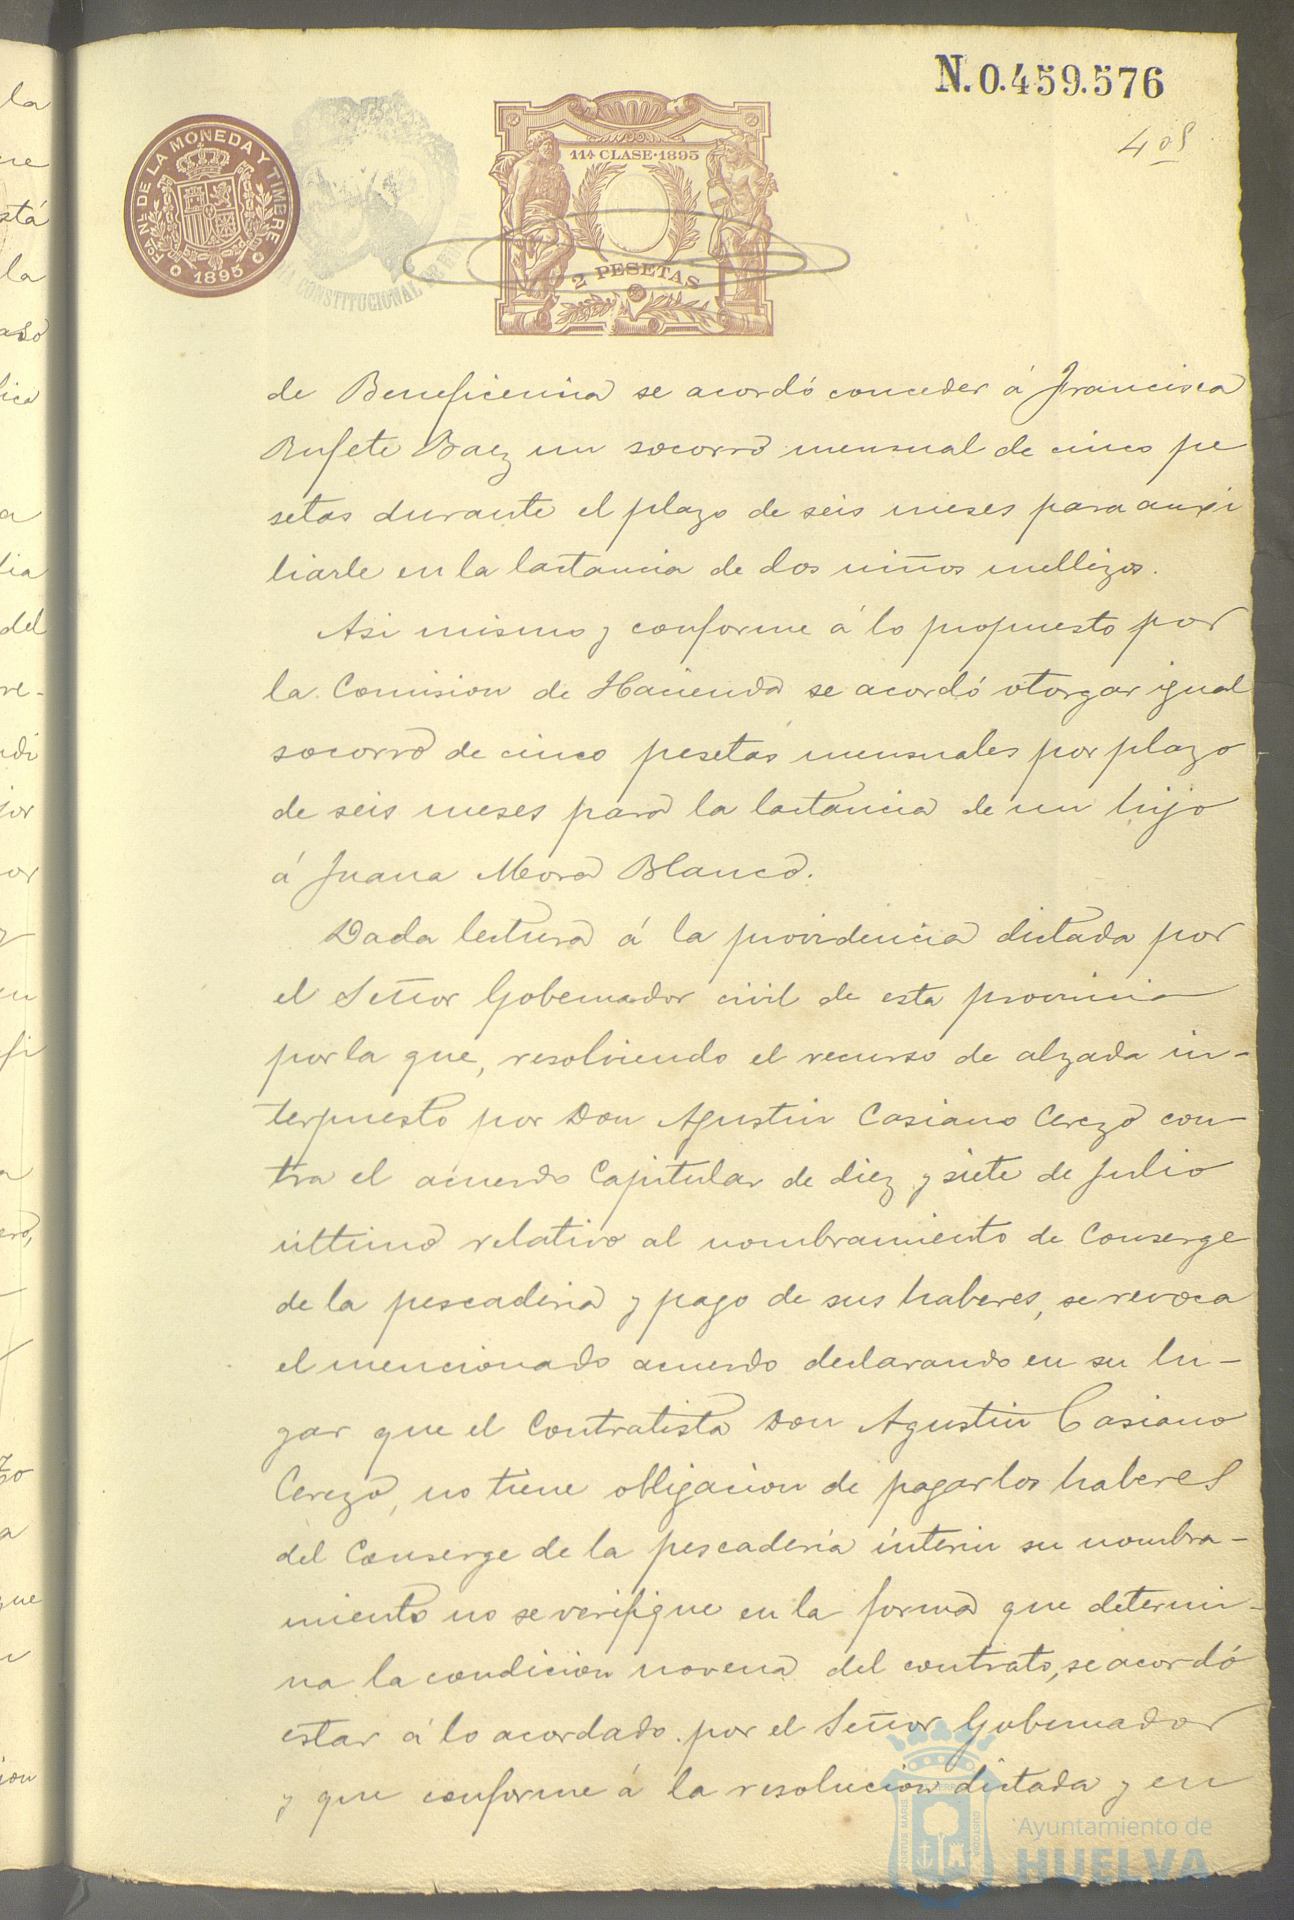 N.0.459.576
FCA. NL. DE LA MONEDA Y TIMBRE
1895
CONSTITUCIONAL
11ª CLASE·1895
2 PESETAS
de Beneficencia se acordó conceder á Francisca
Rufete Baez un socorro mensual de cinco pe
setas durante el plazo de seis meses para auxi
liarle en la lactancia de dos niños mellizos.
Asi mismo y conforme á lo propuesto por
la Comision de Hacienda se acordó otorgar igual
socorro de cinco pesetas mensuales por plazo
de seis meses para la lactancia de un hijo
á Juana Mora Blanco.
Dada lectura á la providencia dictada por
el Señor Gobernador civil de esta provincia
por la que, resolviendo el recurso de alzada in-
terpuesto por Don Agustin Casiano Cerezo con-
tra el acuerdo Capitular de diez y siete de Julio
último relativo al nombramiento de Conserge
de la pescaderia y pago de sus haberes, se revoca
el mencionado acuerdo declarando en su lu-
gar que el Contratista Don Agustin Casiano
Cerezo, no tiene obligacion de pagar los haberes
del Conserge de la pescadería ínterin su nombra-
miento no se verifique en la forma que determi-
na la condicion novena del contrato, se acordó
estar á lo acordado por el Señor Gobernador
y que conforme á la resolución dictada y en
PORTUS MARIS
CUSTODIA
Ayuntamiento de
HUELVA
la
está
la
del
que